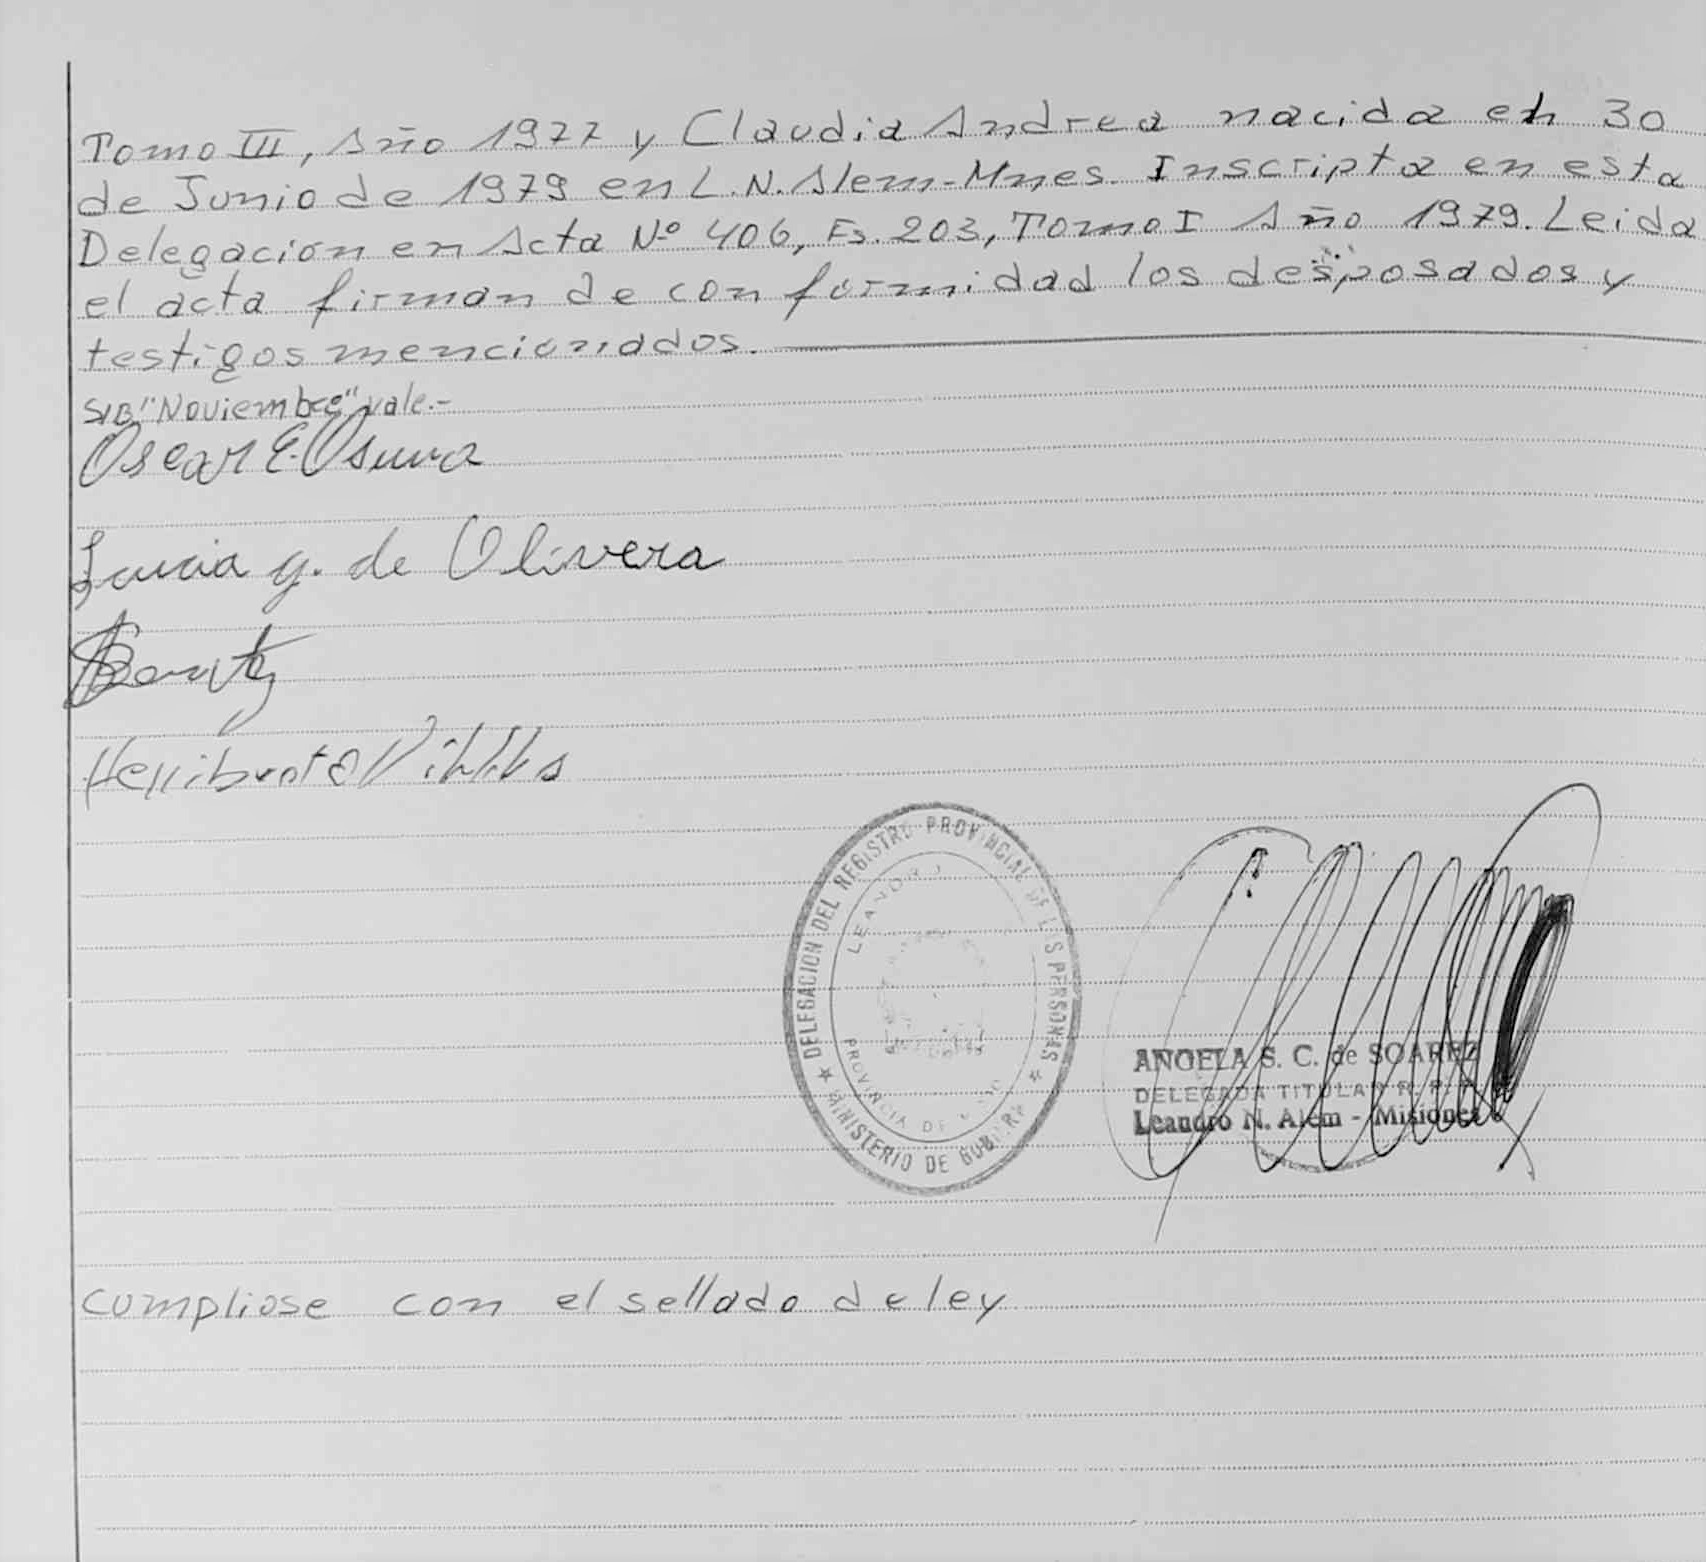 Tomo III, Año 1977 y Claudia Andrea nacida eh 30
de Junio de 1979 en L.N. Alem-Mnes. Inscripta en esta
Delegacion en Acta Nº 406, Fs. 203, Tomo I Año 1979. Leida
el acta firman de conformidad los desposados y
testigos mencionados.
S/B "Noviembre" vale.-
Oscar E. Osuna
Lucia G. de Olivera
Benitez
Herriberto Villalba
DELEGACION DEL REGISTRO PROVINCIAL DE LAS PERSONAS
LEANDRO
PROVINCIA DE
★ MINISTERIO DE GOBIERNO ★
ANGELA S. C. de SOAREZ
DELEGADA TITULAR R. P. P.
Leandro N. Alem - Misiones
cumpliose con el sellado de ley